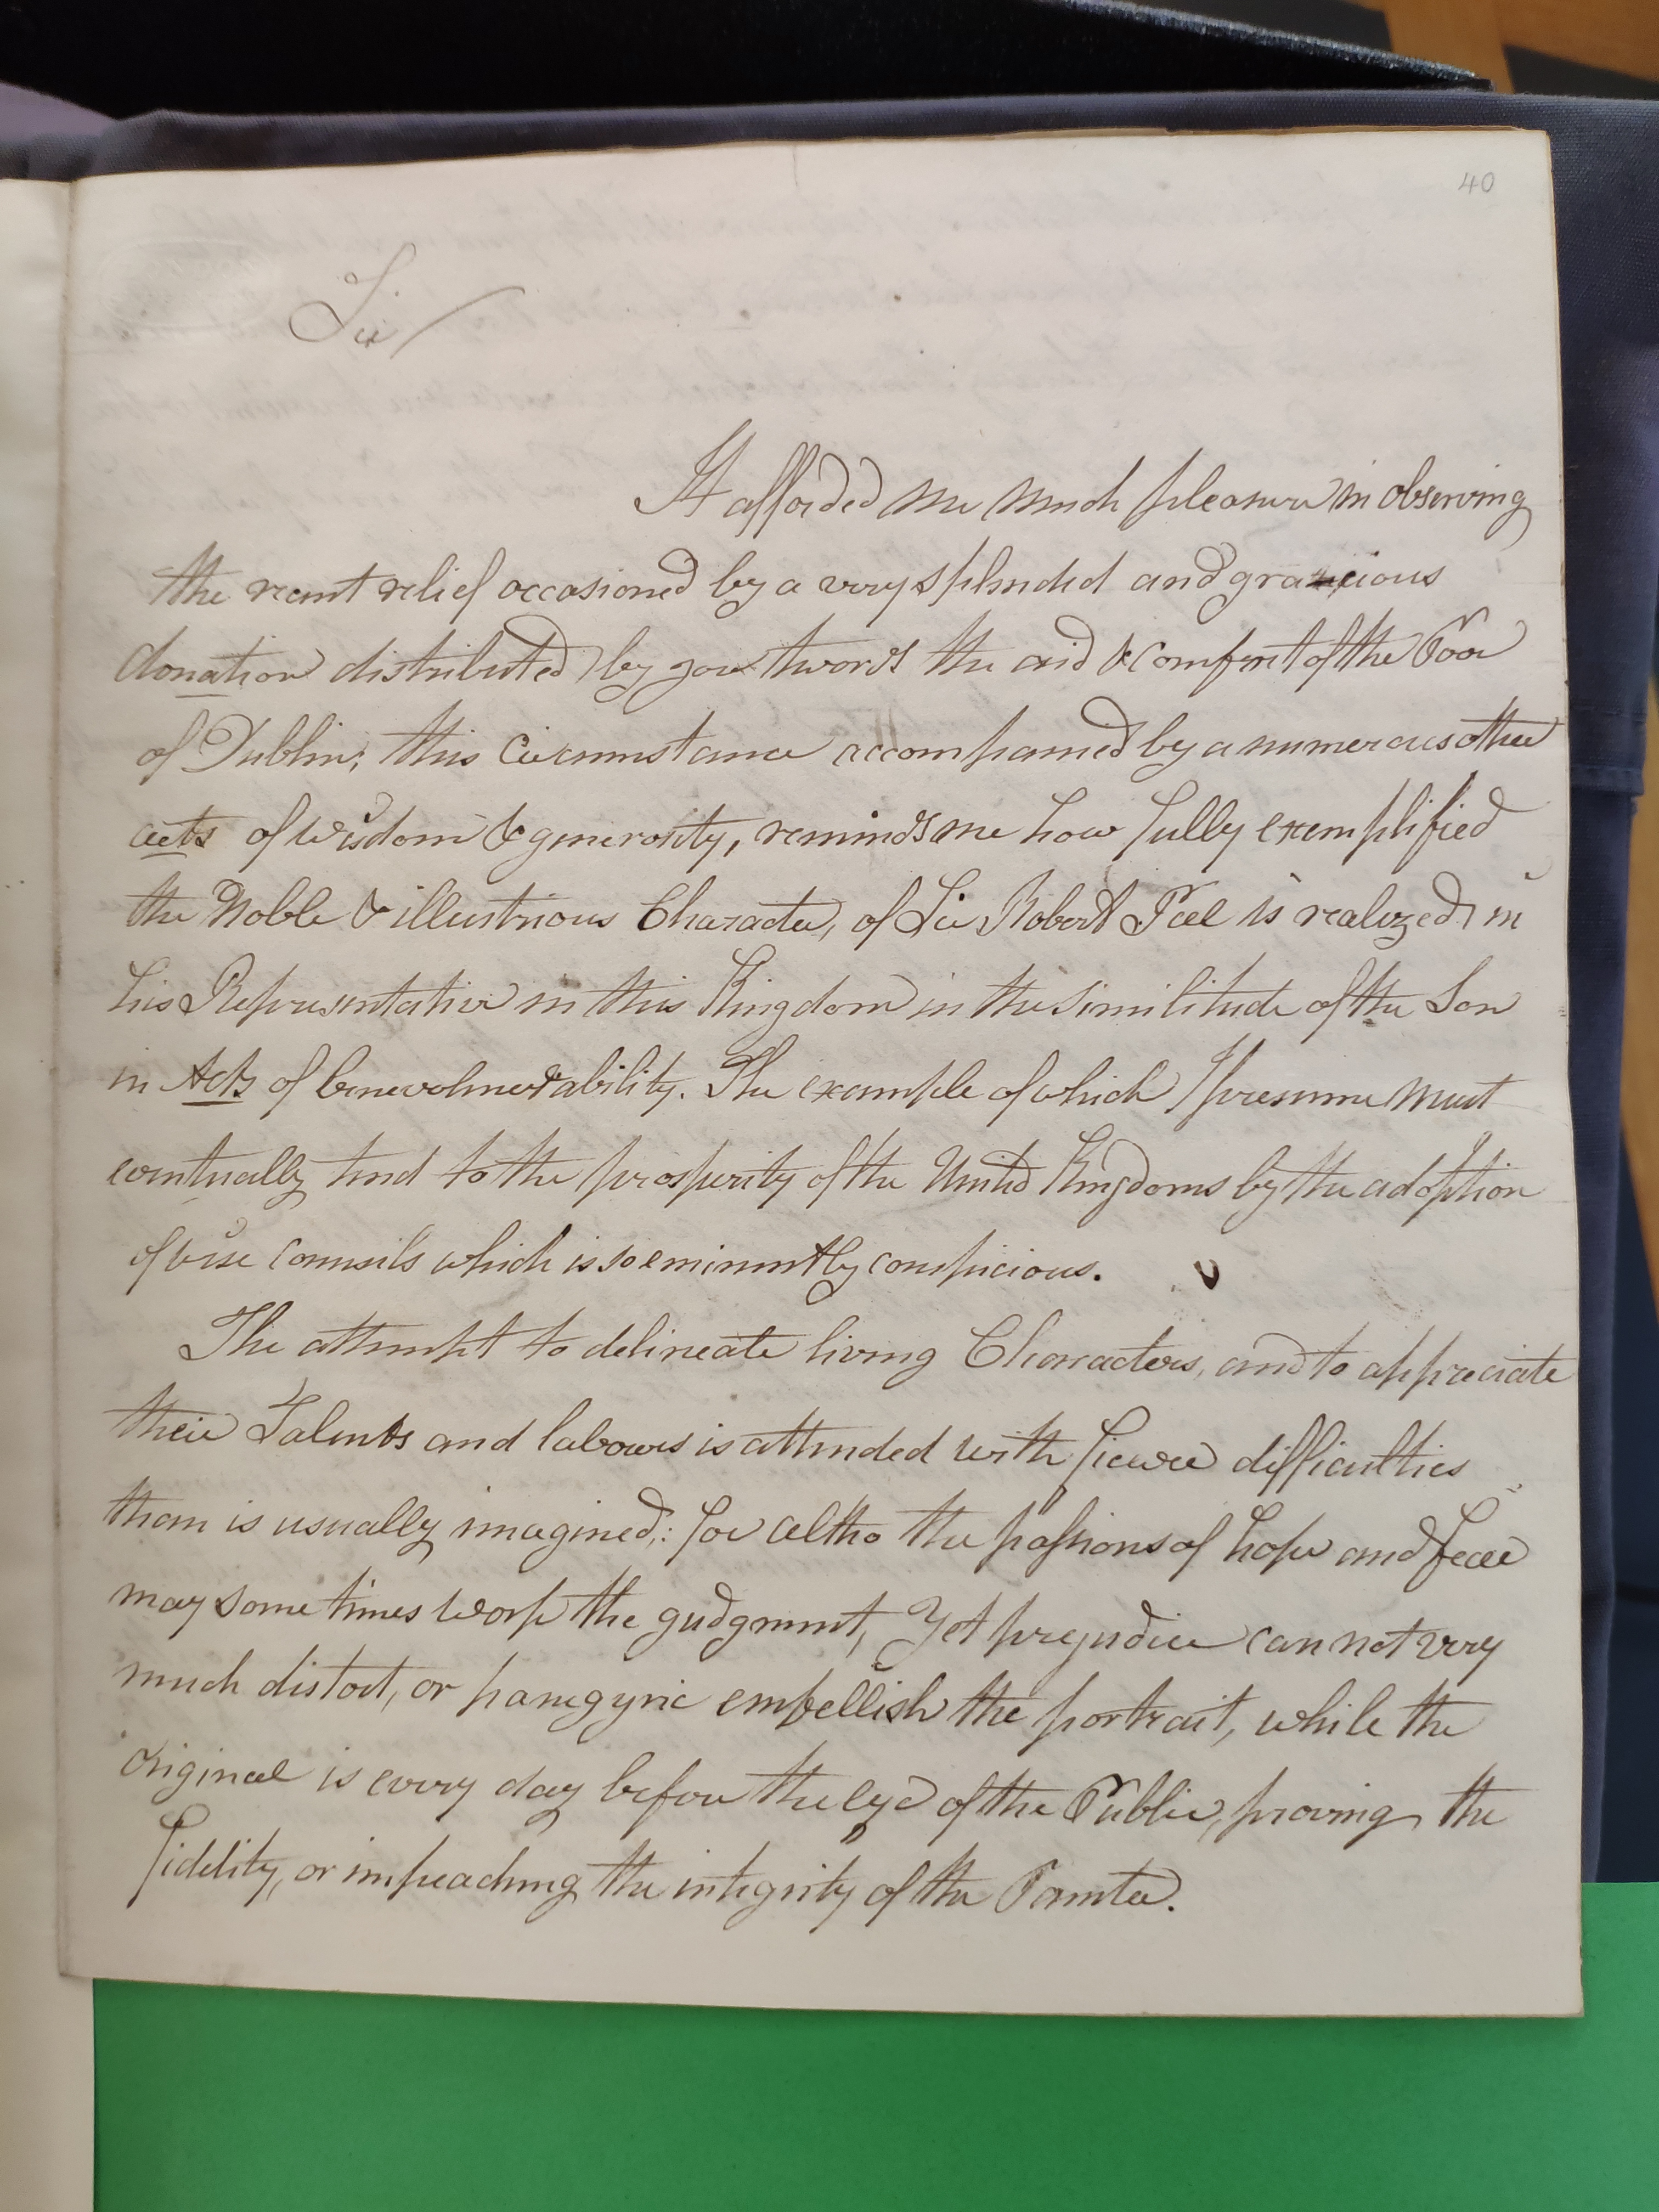 40
Sir
It afforded me much pleasure in observing
the recent relief occasioned by a very splendid and gracious
donation distributed by you twords the aid & comfort of the Poor
of Dublin; this Circumstance accompanied by a numerous other
acts of wisdom & generosity, reminds me how fully exemplified
the Noble & illustrious Character, of Sir Robert Peel is realized in
his Representative in this Kingdom in the similitude of the Son
in Acts of benevolence & ability. The example of which I presume must
eventually tend to the prosperity of the United Kingdoms by the adoption
of wise Counsils which is so eminently conspicious.
The attempt to delineate living Characters, and to appreciate
their Talents and labours is attended with fiewer difficulties
than is usually imagined: for altho the passions of hope and fear
may some times worp the gudgment, Yet prejudice can not very
much distort, or panegyric embellish the portrait, while the
original is every day before the eye of the Public, proving the
fidelity, or impeaching the integrity of the Painter.